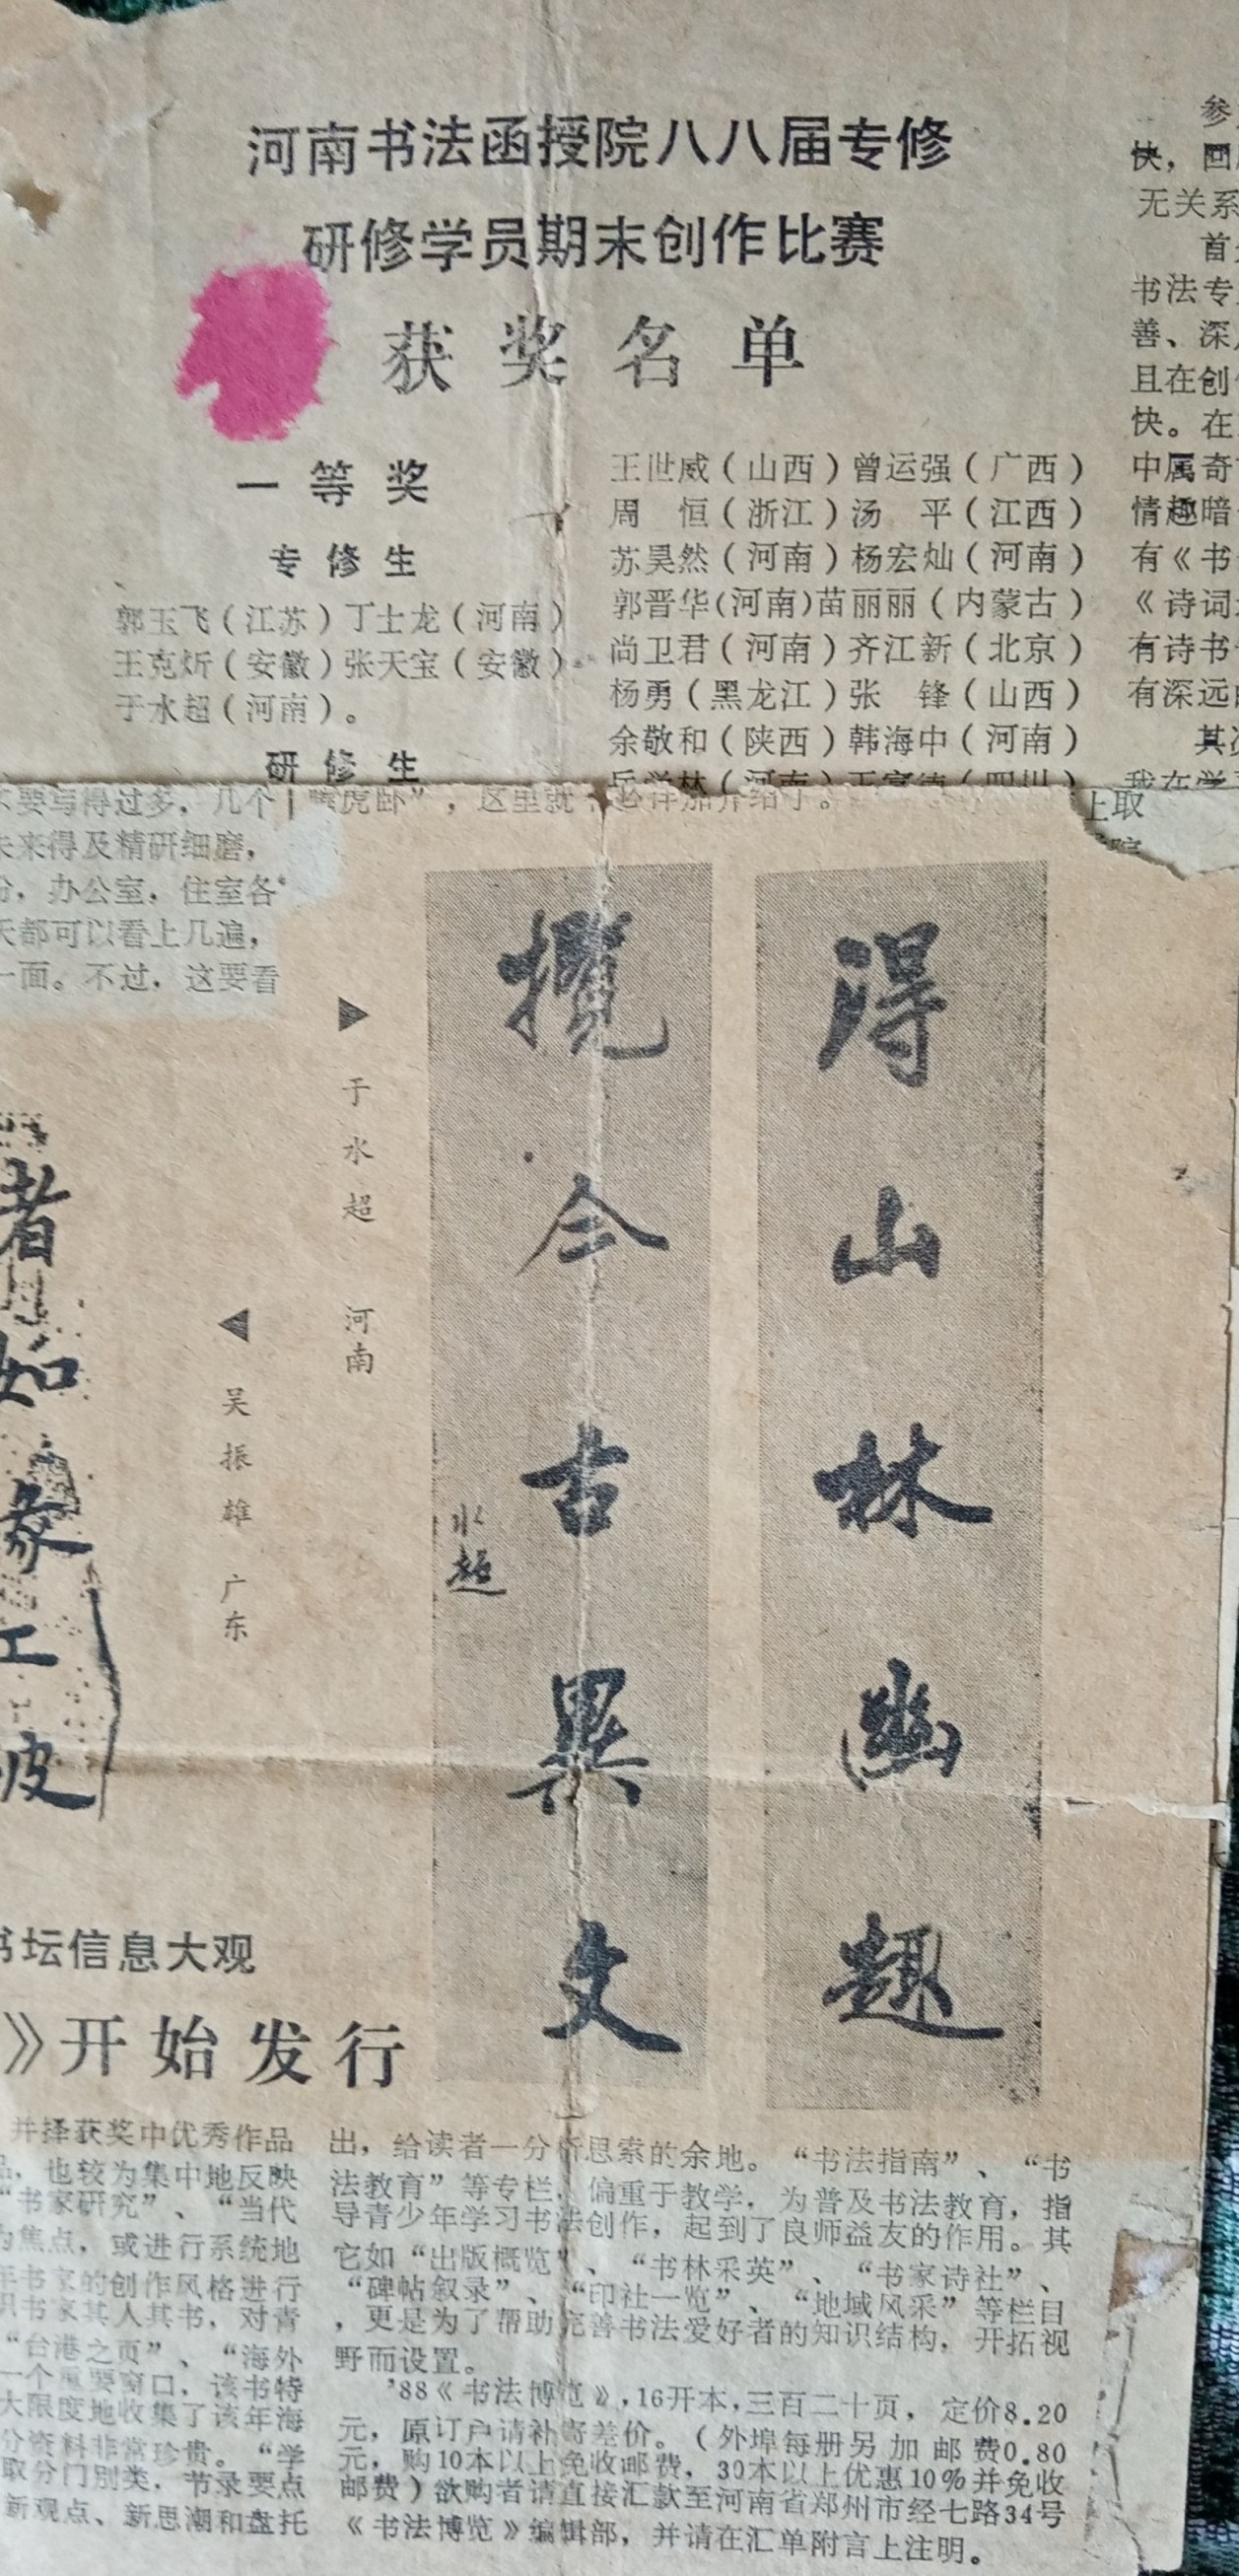 河南书法函授院八八届专修
研修学员期末创作比赛
获奖名单
一等奖
专修生
郭玉飞（江苏）丁士龙（河南）
王克炘（安徽）张天宝（安徽）
于水超（河南）。
研修生
王世威（山西）曾运强（广西）
周　恒（浙江）汤　平（江西）
苏昊然（河南）杨宏灿（河南）
郭晋华(河南)苗丽丽（内蒙古）
尚卫君（河南）齐江新（北京）
杨勇（黑龙江）张　锋（山西）
余敬和（陕西）韩海中（河南）
岳学林（河南）王富德（四川）
参
快，回
无关系
首
书法专
善、深
且在创
快。在
中属奇
情趣暗
有《书
《诗词
有诗书
有深远
其次
我在学
上取
要写得过多，几个
未来得及精研细磨，
份，办公室，住室各
天都可以看上几遍，
一面。不过，这要看
腾虎卧”，这里就不必详加介绍了。
得山林幽趣
揽今古异文
水超
▶于水超　河南
◀吴振雄　广东
者如象工皮
书坛信息大观
》开始发行
并择获奖中优秀作品
品，也较为集中地反映
“书家研究”、“当代
为焦点，或进行系统地
年书家的创作风格进行
识书家其人其书，对青
“台港之页”、“海外
一个重要窗口，该书特
大限度地收集了该年海
分资料非常珍贵。“学
取分门别类，节录要点
新观点、新思潮和盘托
出，给读者一分析思索的余地。“书法指南”、“书
法教育”等专栏，偏重于教学，为普及书法教育，指
导青少年学习书法创作，起到了良师益友的作用。其
它如“出版概览”、“书林采英”、“书家诗社”、
“碑帖叙录”、“印社一览”、“地域风采”等栏目
，更是为了帮助完善书法爱好者的知识结构，开拓视
野而设置。
’88《书法博览》,16开本,三百二十页，定价8.20
元，原订户请补寄差价。（外埠每册另加邮费0.80
元，购10本以上免收邮费，30本以上优惠10%并免收
邮费）欲购者请直接汇款至河南省郑州市经七路34号
《书法博览》编辑部，并请在汇单附言上注明。